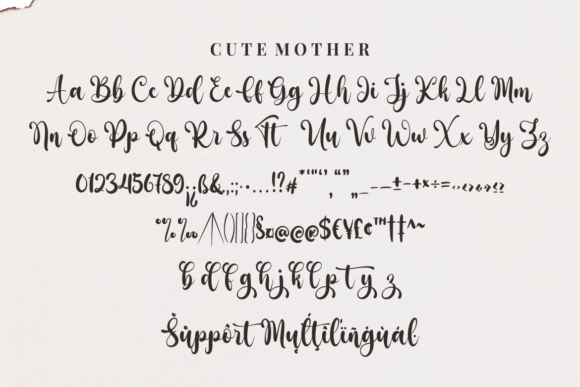 CUTE MOTHER
Aa Bb Cc Dd Ee Ff Gg Hh Ii Jj Kk Ll Mm
Nn Oo Pp Qq Rr Ss Tt Uu Vv Ww Xx Yy Zz
0123456789¡¿ß&,:;·...!?#*'"‘’“”‚„_—–-±-+x÷=~«»‹›
°%‰/\()[]{}§¤@©®$€¥£¢™†‡^~
b d f g h j k l p t y z
Šüppôrt Muļţiļïñģùál